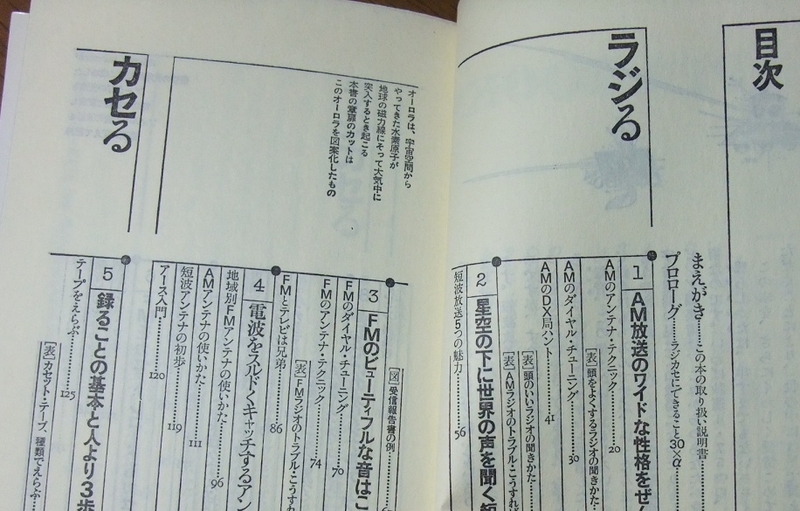 目次
ラジる
まえがき………この本の取り扱い説明書
プロローグ………ラジカセにできること30×α
1 AM放送のワイドな性格をぜ
AMのアンテナ・テクニック………20
[表]頭をよくするラジオの聞きかた
AMのダイヤル・チューニング………30
AMのDX局ハント………41
[表]頭のいいラジオの聞きかた
[表]AMラジオのトラブル・こうすれ
2 星空の下に世界の声を聞く短
短波放送5つの魅力………56
オーロラは、宇宙空間から
やってきた水素原子が
地球の磁力線にそって大気中に
突入するとき起こる
本書の章扉のカットは
このオーロラを図案化したもの
[図]受信報告書の例
3 FMのビューティフルな音はこ
FMのダイヤル・チューニング………70
FMのアンテナ・テクニック………74
[表]FMラジオのトラブル・こうすれ
FMとテレビは兄弟………86
4 電波をスルドくキャッチするアン
地域別FMアンテナの使いかた………96
AMアンテナの使いかた………111
短波アンテナの初歩………119
アース入門………120
カセる
5 録ることの基本と人より3歩
テープをえらぶ………125
[表]カセット・テープ、種類でえらぶ